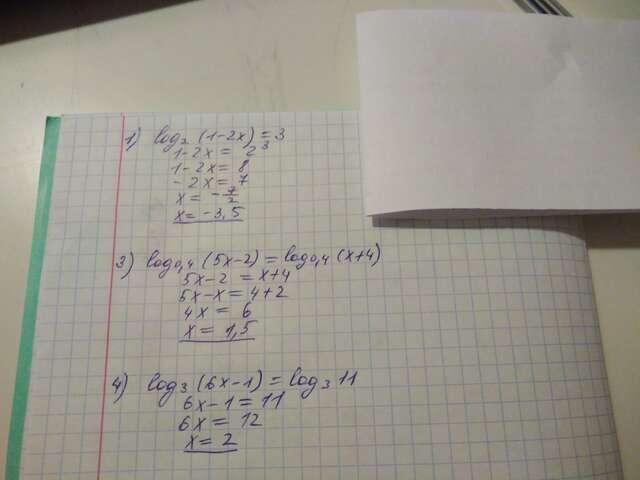 1) log₂ (1-2x) = 3
1-2x = 2³
1-2x = 8
-2x = 7
x = -7/2
x = -3,5
3) log₀,₄ (5x-2) = log₀,₄ (x+4)
5x-2 = x+4
5x-x = 4+2
4x = 6
x = 1,5
4) log₃ (6x-1) = log₃ 11
6x-1 = 11
6x = 12
x = 2